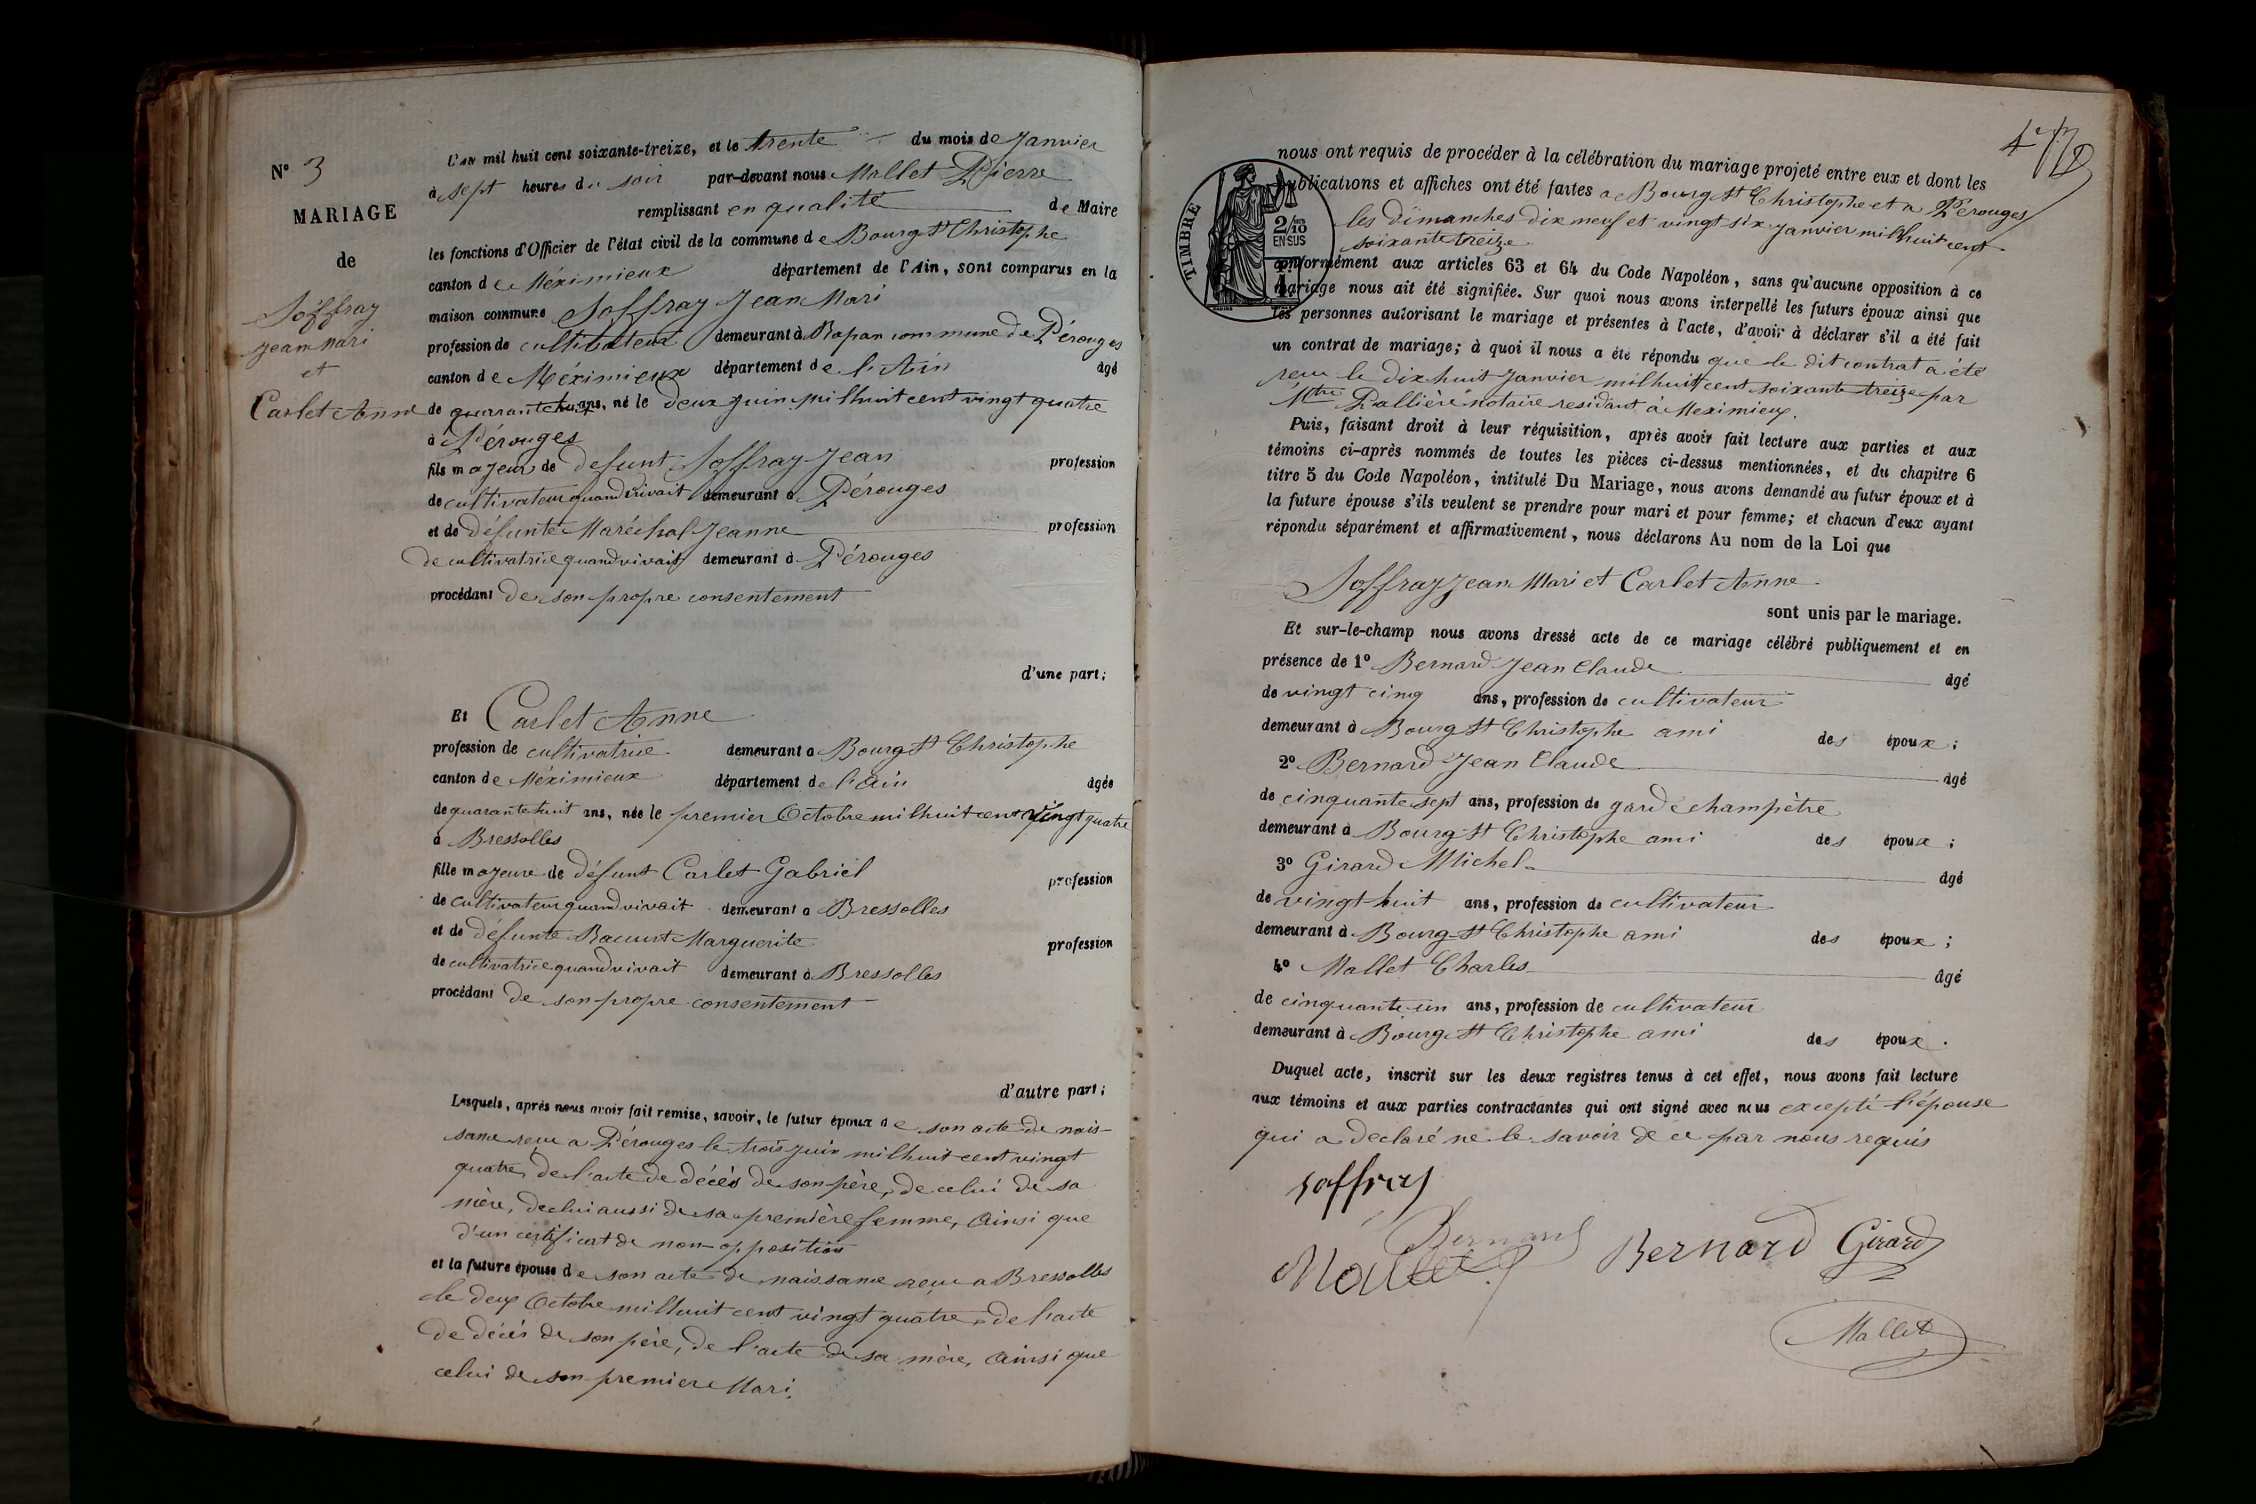 N° 3
MARIAGE
de
Joffray
Jean Mari
et
Carlet Anne
L'an mil huit cent soixante-treize, et le trente du mois de Janvier
à sept heures du soir par-devant nous Mallet Pierre
remplissant en qualité de Maire
les fonctions d'Officier de l'état civil de la commune de Bourg St Christophe
canton de Méximieux département de l'Ain, sont comparus en la
maison commune Joffray Jean Mari
profession de cultivateur demeurant à Rapan commune de Pérouges
canton de Méximieux département de l'Ain âgé
de quarante huit ans, né le deux Juin mil huit cent vingt quatre
à Pérouges
fils majeur de defunt Joffray Jean profession
de cultivateur quand vivait demeurant à Pérouges
et de défunte Maréchal Jeanne profession
de cultivatrice quand vivait demeurant à Pérouges
procédant de son propre consentement
d'une part;
Et Carlet Anne
profession de cultivatrice demeurant à Bourg St Christophe
canton de Méximieux département de l'ain âgée
de quarante huit ans, née le premier Octobre mil huit cent vingt quatre
à Bressolles
fille majeure de défunt Carlet Gabriel profession
de cultivateur quand vivait demeurant à Bressolles
et de défunte Marguerite profession
de cultivatrice quand vivait demeurant à Bressolles
procédant de son propre consentement
d'autre part;
Lesquels, après nous avoir fait remise, savoir, le futur époux de son acte de nais-
sance reçu a Pérouges le trois Juin mil huit cent vingt
quatre, de l'acte de décès de son père, de celui de sa
mère, de celui aussi de sa première femme, Ainsi que
d'un certificat de non opposition
et la future épouse de son acte de naissance reçu a Bressolles
le deux Octobre mil huit cent vingt quatre, de l'acte
de décès de son père, de l'acte de sa mère, Ainsi que
celui de son premier Mari.
nous ont requis de procéder à la célébration du mariage projeté entre eux et dont les
publications et affiches ont été faites a Bourg St Christophe et a Pérouges
les dimanches dix neuf et vingt six Janvier mil huit cent
soixante treize
TIMBRE
2/10
EN SUS
conformément aux articles 63 et 64 du Code Napoléon, sans qu'aucune opposition à ce
mariage nous ait été signifiée. Sur quoi nous avons interpellé les futurs époux ainsi que
les personnes autorisant le mariage et présentes à l'acte, d'avoir à déclarer s'il a été fait
un contrat de mariage; à quoi il nous a été répondu que le dit contrat a été
reçu le dix huit Janvier mil huit cent soixante treize par
Mtre Pallière notaire residant à Meximieux.
Puis, faisant droit à leur réquisition, après avoir fait lecture aux parties et aux
témoins ci-après nommés de toutes les pièces ci-dessus mentionnées, et du chapitre 6
titre 5 du Code Napoléon, intitulé Du Mariage, nous avons demandé au futur époux et à
la future épouse s'ils veulent se prendre pour mari et pour femme; et chacun d'eux ayant
répondu séparément et affirmativement, nous déclarons Au nom de la Loi que
Joffray Jean Mari et Carlet Anne
sont unis par le mariage.
Et sur-le-champ nous avons dressé acte de ce mariage célébré publiquement et en
présence de 1° Bernard Jean Claude âgé
de vingt cinq ans, profession de cultivateur
demeurant à Bourg St Christophe ami des époux;
2° Bernard Jean Claude âgé
de cinquante sept ans, profession de garde champêtre
demeurant à Bourg St Christophe ami des époux;
3° Girard Michel âgé
de vingt huit ans, profession de cultivateur
demeurant à Bourg St Christophe ami des époux;
4° Mallet Charles âgé
de cinquante un ans, profession de cultivateur
demeurant à Bourg St Christophe ami des époux.
Duquel acte, inscrit sur les deux registres tenus à cet effet, nous avons fait lecture
aux témoins et aux parties contractantes qui ont signé avec nous excepté l'épouse
qui a declaré ne le savoir de ce par nous requis
Joffray
Bernard
Mallet Bernard Girard
Mallet